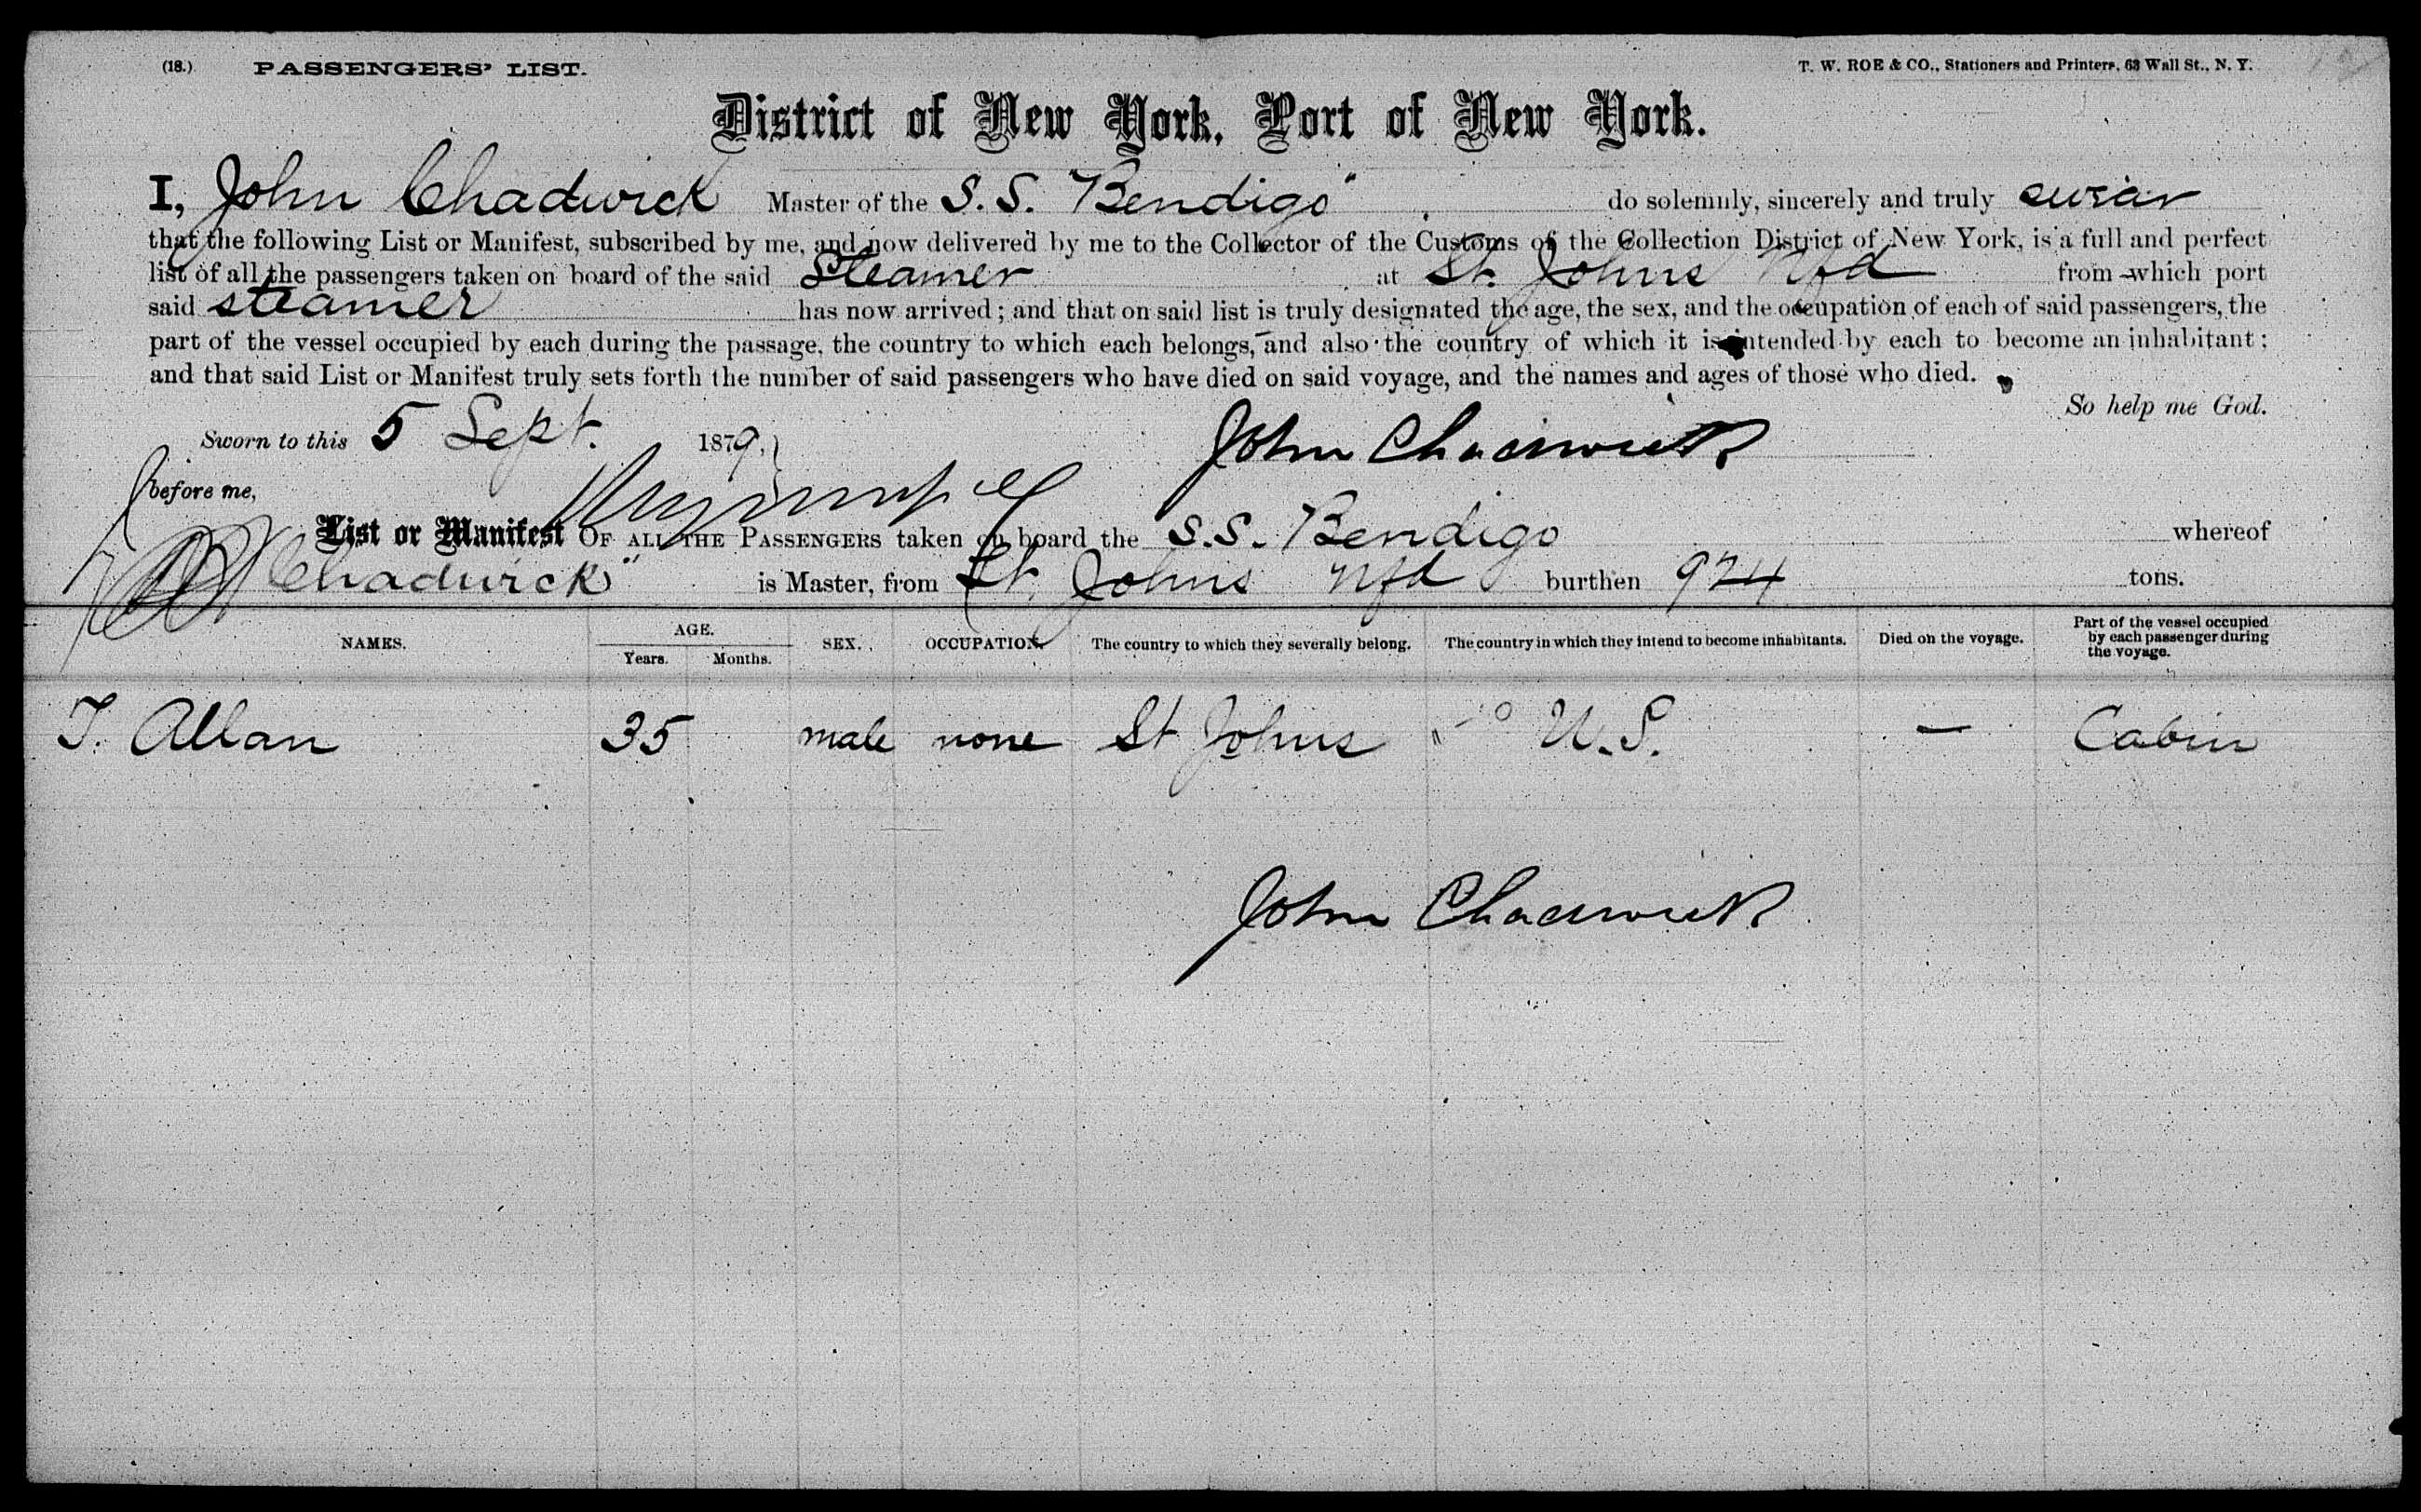 (18.) PASSENGERS' LIST. T. W. ROE & CO., Stationers and Printers, 63 Wall St., N. Y.
District of New York, Port of New York.
I, John Chadwick Master of the S. S. "Bendigo" do solemnly, sincerely and truly swear
that the following List or Manifest, subscribed by me, and now delivered by me to the Collector of the Customs of the Collection District of New York, is a full and perfect
list of all the passengers taken on board of the said Steamer at St. Johns Nfd from which port
said steamer has now arrived; and that on said list is truly designated the age, the sex, and the occupation of each of said passengers, the
part of the vessel occupied by each during the passage, the country to which each belongs, and also the country of which it is intended by each to become an inhabitant;
and that said List or Manifest truly sets forth the number of said passengers who have died on said voyage, and the names and ages of those who died.
So help me God.
Sworn to this 5 Sept. 1879, John Chadwick
before me,
List or Manifest OF ALL THE PASSENGERS taken on board the S.S. Bendigo whereof
Chadwick" is Master, from St. Johns Nfd burthen 924 tons.
NAMES. AGE. Years. Months. SEX. OCCUPATION. The country to which they severally belong. The country in which they intend to become inhabitants. Died on the voyage. Part of the vessel occupied by each passenger during the voyage.
T. Allan 35 male none St Johns U.S. — Cabin
John Chadwick